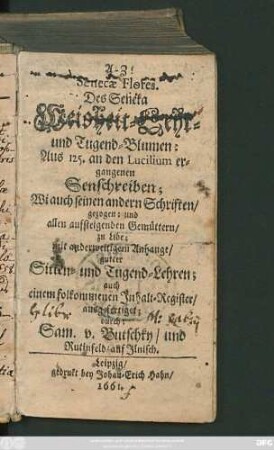 A-Z!
Senecæ Flores.
Des Seneka
Weisheit-Lehr-
und Tugend-Blumen:
Aus 125. an den Lucilium er-
gangenen
Senschreiben;
Wi auch seinen andern Schriften/
gezogen: und
allen aufsteigenden Gemüttern/
zu Libe;
mit anderweitigem Anhange/
gutter
Sitten- und Tugend-Lehren;
auch
einem folkommenen Inhalt-Register/
ausgefärtiget;
durch
Sam. v. Butschky/ und
Rutinfeld/ auf Ilnisch.
Leipzig/
gedrukt bey Johan-Erich Hahn/
1661.